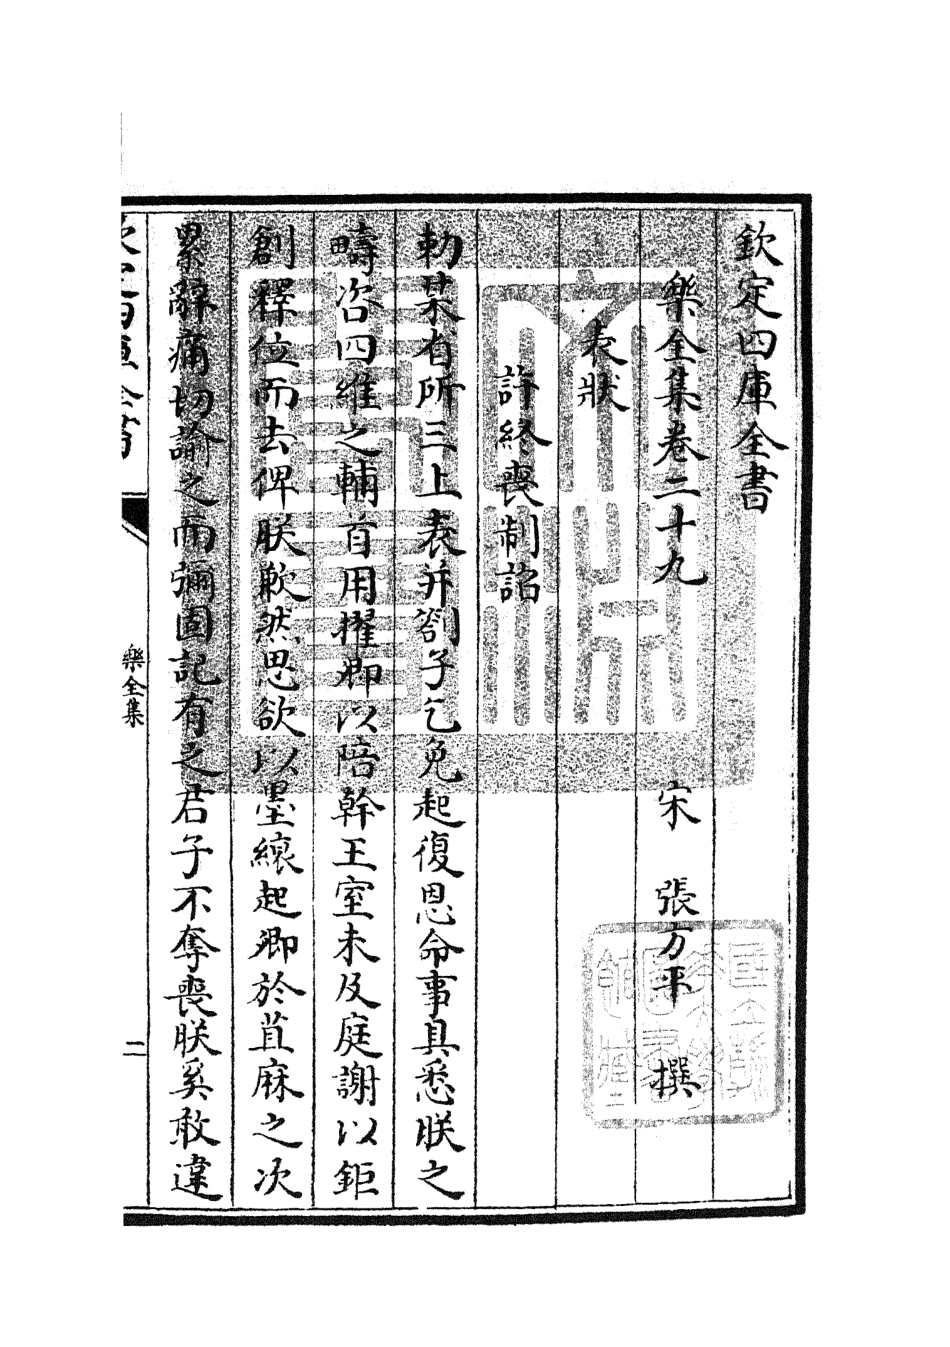 欽定四庫全書
樂全集卷二十九
宋 張方平 撰
表狀
許終喪制詔
勅某省所三上表并劄子乞免起復恩命事具悉朕之
疇咨四維之輔首用擢卿以陪幹王室未及庭謝以鉅
創釋位而去俾朕歉然思欲以墨縗起卿於苴麻之次
累辭痛切諭之而彌固記有之君子不奪喪朕奚敢違
樂全集
二